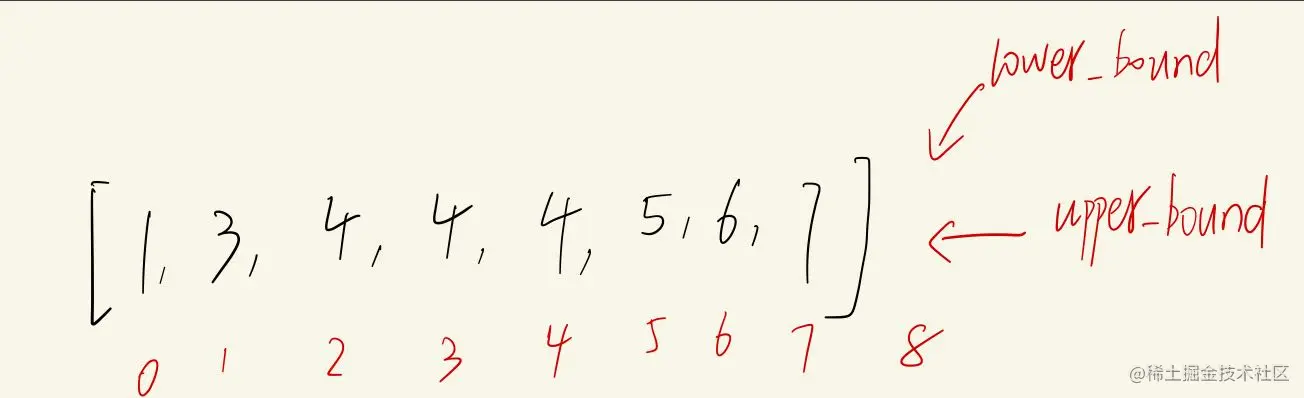 lower_bound
[1, 3, 4, 4, 4, 5, 6, 7]
upper_bound
0 1 2 3 4 5 6 7 8
@稀土掘金技术社区